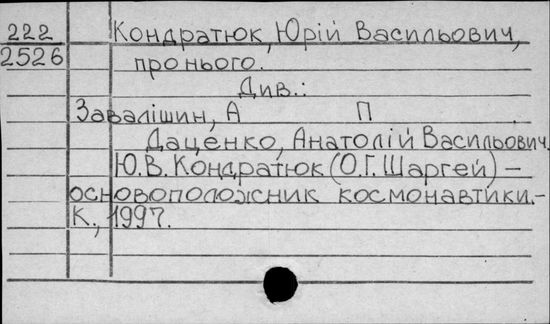 222 Кондратюк, Юрій Васильович,
2526 про нього.
Див.:
Завалішин, А П
Даценко, Анатолій Васильович.
Ю.В. Кондратюк (О.Г. Шаргей) –
основоположник космонавтики.-
К., 1997.